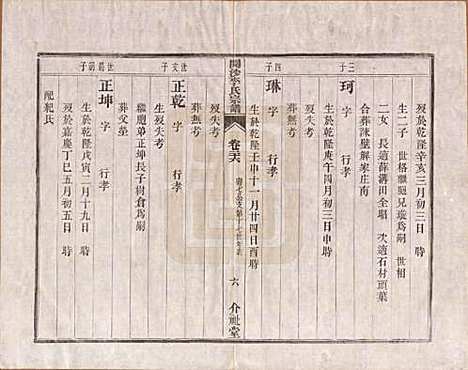 歿於乾隆辛亥三月初三日時
生二子 世格繼兄瑞爲嗣 世相
二女 長適薛溝田全唱 次適石材頭葉
合葬
解家庄南
三子
珂 字 行孝
生於乾隆庚午四月初三日申時
歿失考
葬無考
四子
琳 字 行孝
生於乾隆壬申十一月廿四日酉時
歿失考
葬無考
開沙李氏宗譜
卷六
六 介祉堂
世文子
正乾 字 行孝
歿失考
繼胞弟正坤長子樹倉爲嗣
葬父塋
世爵嗣子
正坤 字 行孝
生於乾隆戊寅二月十九日
歿於嘉慶丁巳五月初五日
配杞氏